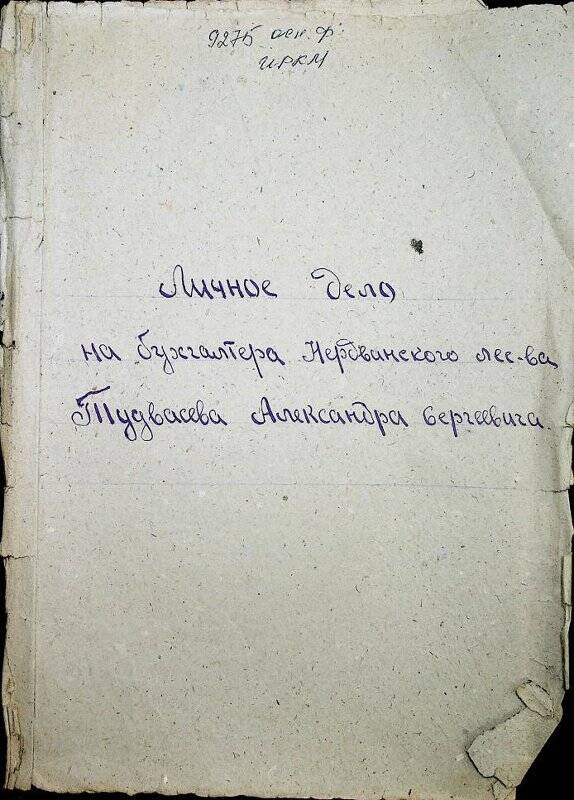 9275 осн. ф.
ИРКМ
Личное дело
на бухгалтера Нердвинского лес-ва
Тудвасева Александра Сергеевича.